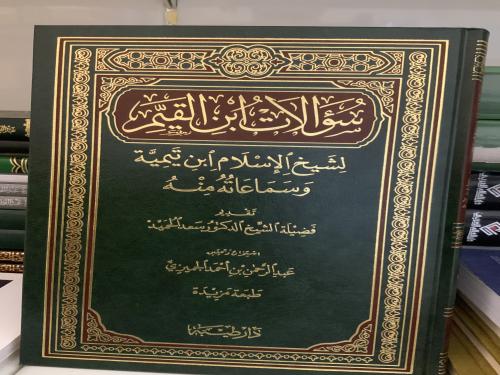 سُؤَالَاتُ ابْنِ القَيِّمِ
لِشَيْخِ الإِسْلَامِ ابْنِ تَيْمِيَّة
وَسَمَاعَاتُهُ مِنْهُ
تقديم
فضيلة الشيخ الدكتور سعد الحميد
عبد الرحمن بن أحمد الجميزي
طبعة مزيدة
دار طيبة